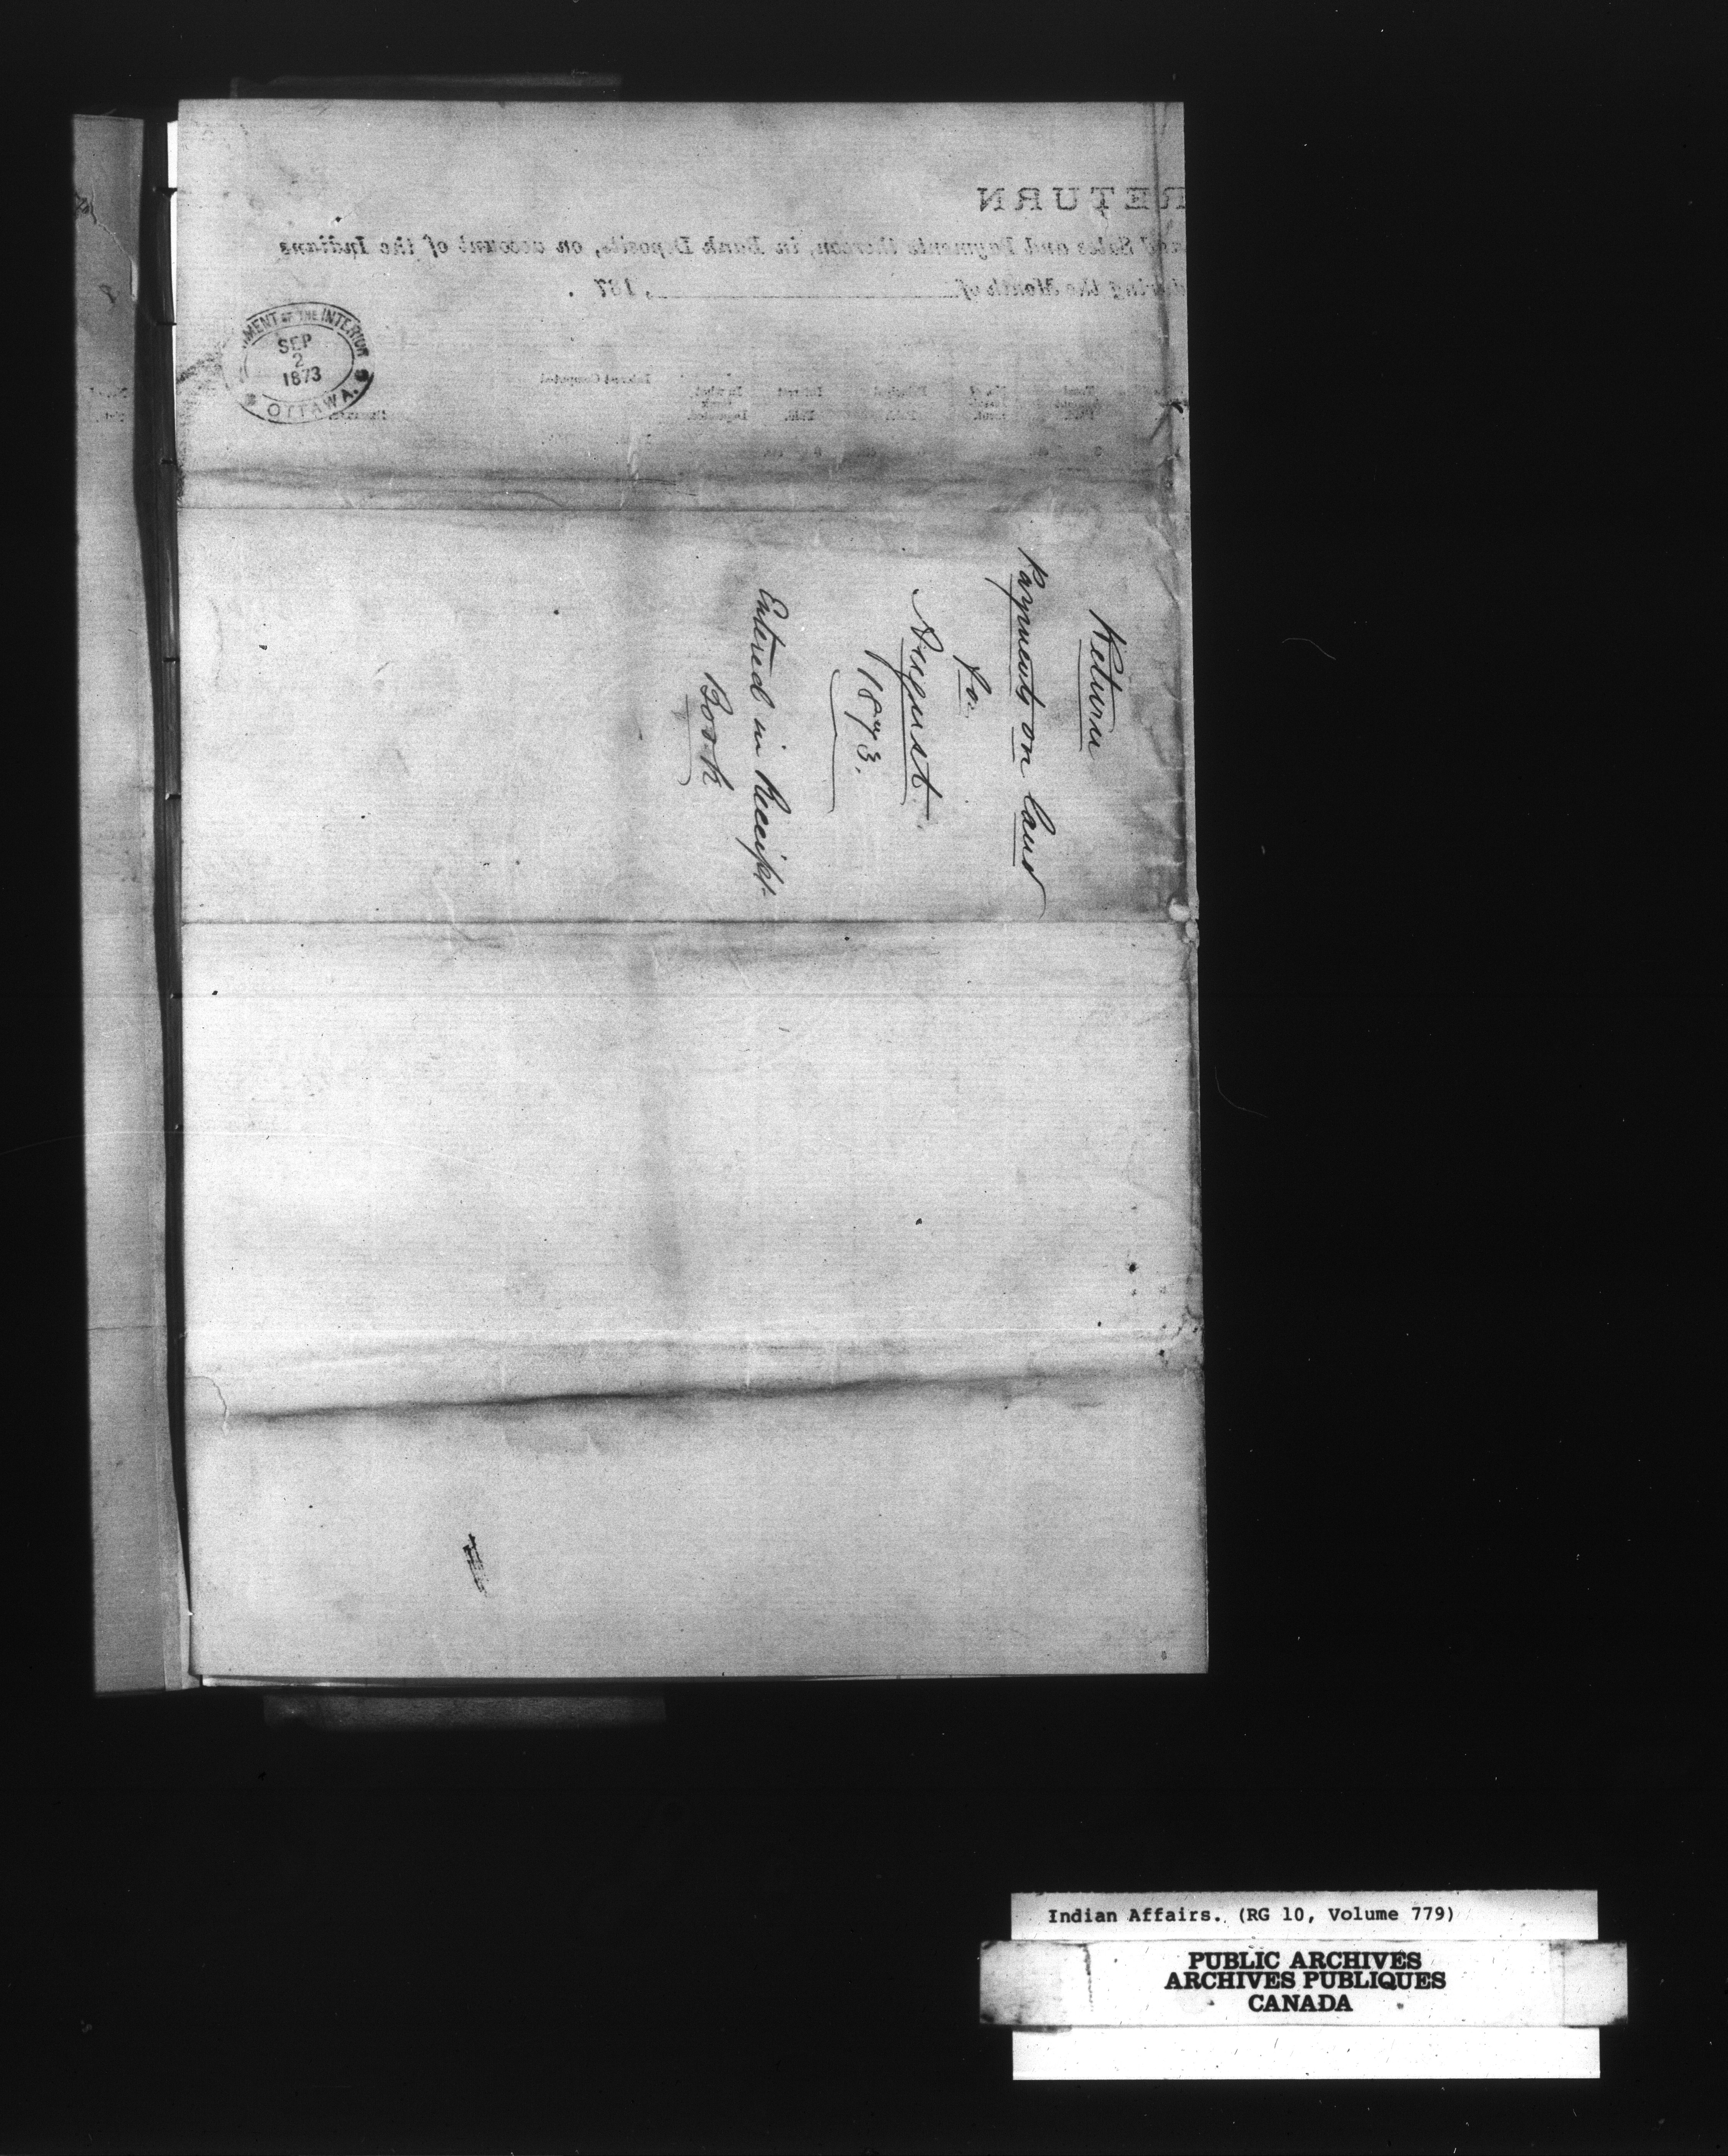 RETURN
Sales and Payments thereon, in Bank Deposits, on account of the Indians
during the Month of , 187 .
DEPARTMENT OF THE INTERIOR
SEP
2
1873
OTTAWA.
Interest Computed
Return
Payments on Land
for
August
1873.
Entered in Receipt
Book
Indian Affairs. (RG 10, Volume 779)
PUBLIC ARCHIVES
ARCHIVES PUBLIQUES
CANADA